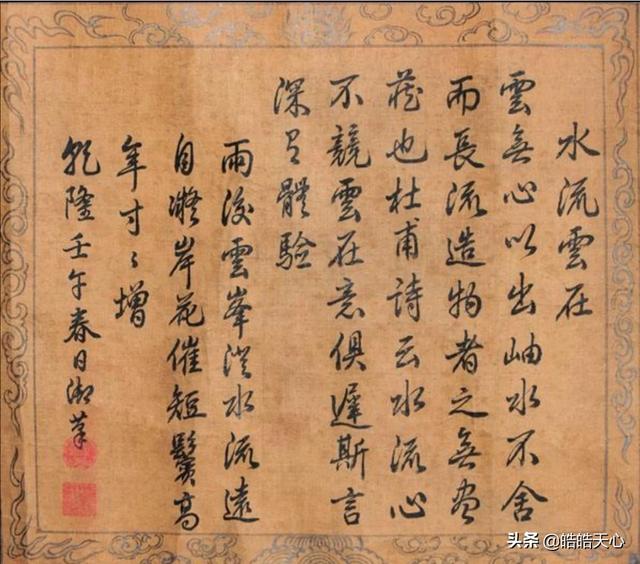 水流雲在
雲無心以出岫水不舍
而長流造物者之無盡
藏也杜甫詩云水流心
不競雲在意俱遲斯言
深有體驗
雨後雲峯澄水流遠
自凝岸花催短鬢高
年寸〻增
乾隆壬午春日御筆
头条 @皓皓天心